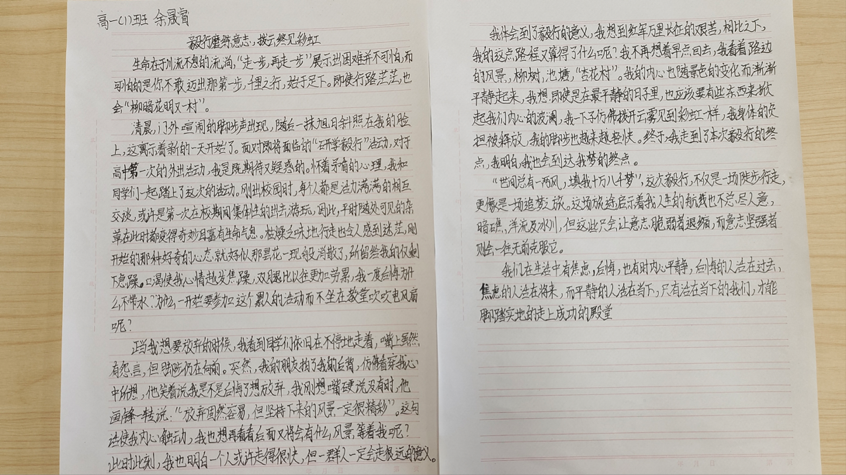 高一(1)班 余晟賫
毅行磨练意志，拨云终见彩虹
生命在于川流不息的流淌，“走一步，再走一步”展示出困难并不可怕，而
可怕的是你不敢迈出那第一步，千里之行，始于足下。即使行路茫茫，也
会“柳暗花明又一村”。
清晨，门外喧闹的脚步声出现，随后一抹旭日斜照在我的脸
上，这寓示着新的一天开始了。面对即将面临的“云研学毅行”活动，对于
高中第一次的外出活动，我是既期待又疑惑的。怀着好奇的心理，我和
同学们一起踏上了这次的活动。刚出校园时，每个人都是活力满满的相互
交谈，或许是第一次在校期间集体性的出去游玩，因此，平时随处可见的杂
草在此时都变得奇妙且富有生命气息。枯燥乏味地行走也令人感到迷茫，刚
开始的那种好奇的心态，就好似那昙花一现般消散了，所留给我的仅剩
下急躁。口渴使我心情越发焦躁，双腿比以往更加劳累，我一度后悔为什
么不带水？为什么一开始要参加这个累人的活动而不坐在教室吹吹电风扇
呢？
正当我想要放弃的时候，我看到同学们依旧在不停地走着，嘴上虽然
有怨言，但脚步仍在向前。突然，我的朋友拍了我的后背，仿佛看穿我心
中所想，他笑着说我是不是后悔了想放弃，我刚想嘴硬说没有时，他
画锋一转说：“放弃固然容易，但坚持下来的风景一定很精纱”。这句
话使我内心触动，我也想再看看后面又将会有什么风景等着我呢？
此时此刻，我也明白一个人或许走得很快，但一群人一定会走很远的意义。
我体会到了毅行的意义，我想到红军万里长征的艰苦，相比之下，
我的这点路程又算得了什么呢？我不再想着早点回去，我看着路边
的风景，柳树，池塘，“杏花村”。我的内心也随景色的变化而渐渐
平静起来，我想即使是在最平静的日子里，也应该要有些东西来掀
起我们内心的波澜，我一下子仿佛拨开云雾见到彩虹一样，我身体的负
担被释放，我的脚步也越来越轻快。终于，我走到了本次毅行的终
点，我明白，我也会到达我梦的终点。
“世间总有一两风，填我十万八千梦”，这次毅行，不仅是一场徒步行走，
更像是一场追梦之旅。这场旅途启示着我人生的航线也不总尽人意，
暗礁，洋流及冰川，但这些只会让意志脆弱者退缩，而意志坚强者
则会一往无前克服它。
我们在生活中有焦虑，后悔，也有时内心平静，后悔的人活在过去，
焦虑的人活在将来，而平静的人活在当下，只有活在当下的我们，才能
脚踏实地的走上成功的殿堂